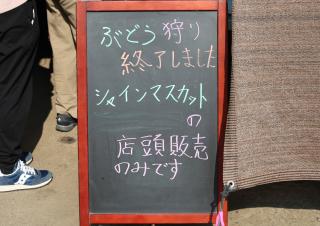 ぶどう狩り
終了しました
シャインマスカット
の
店頭販売
のみです